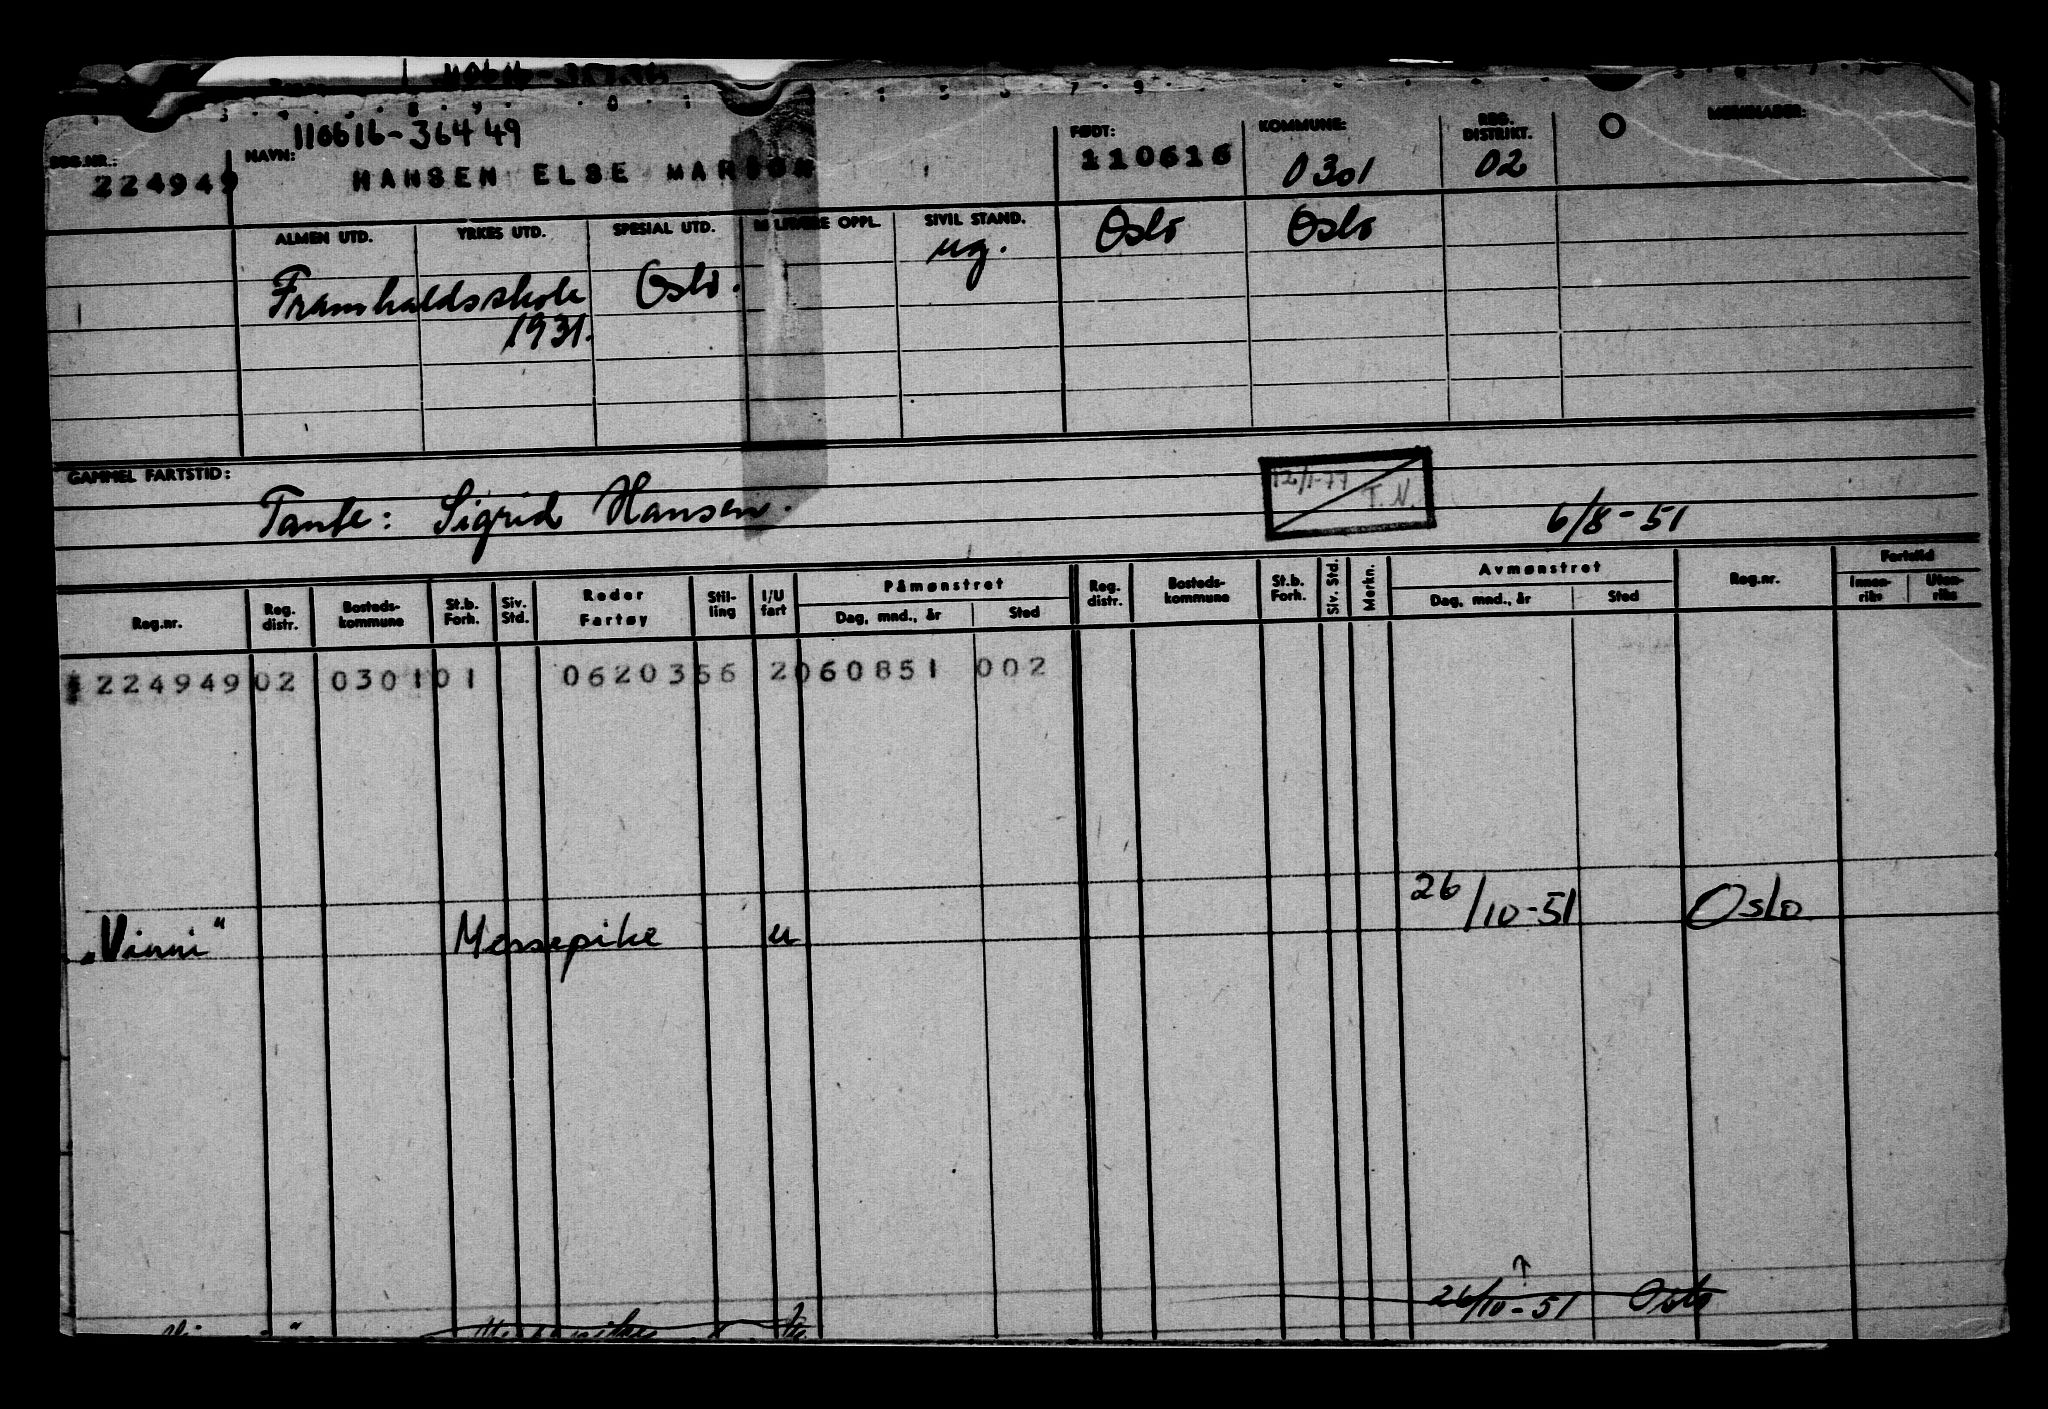 110616-36449
REG.NR.: NAVN: FØDT: KOMMUNE: REG. DISTRIKT. MERKNADER:
224949 HANSEN ELSE MARION 110616 0301 02
ALMEN UTD. YRKES UTD. SPESIAL UTD. OPPL. SIVIL STAND.
ug. Oslo Oslo
Framhaldsskole Oslo.
1931.
GAMMEL FARTSTID:
12/1-77 T.N.
Tante: Sigrid Hansen. 6/8-51
Reg.nr. Reg. distr. Bosteds- kommune St.b. Forh. Siv. Std. Reder Fartøy Stil- ling I/U fart Påmønstret Dag, mnd., år Sted Reg. distr. Bosteds- kommune St.b. Forh. Siv. Std. Merkn. Avmønstret Dag, mnd., år Sted Reg.nr. Fartstid Innen- riks Uten- riks
224949 02 0301 01 0620356 2 060851 002
„Vinni" Messepike u 26/10-51 Oslo
26/10-51 Oslo